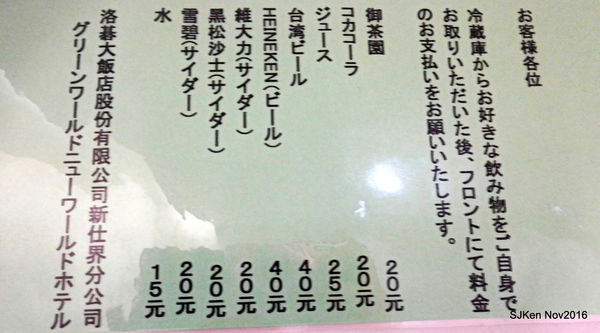 お客様各位
冷蔵庫からお好きな飲み物をご自身で
お取りいただいた後、フロントにて料金
のお支払いをお願いいたします。
御茶園 20元
コカコーラ 20元
ジュース 25元
台湾ビール 40元
HEINEKEN(ビール) 40元
維大力(サイダー) 20元
黑松沙士(サイダー) 20元
雪碧(サイダー) 20元
水 15元
洛碁大飯店股份有限公司新仕界分公司
グリーンワールドニューワールドホテル
SJKen Nov2016